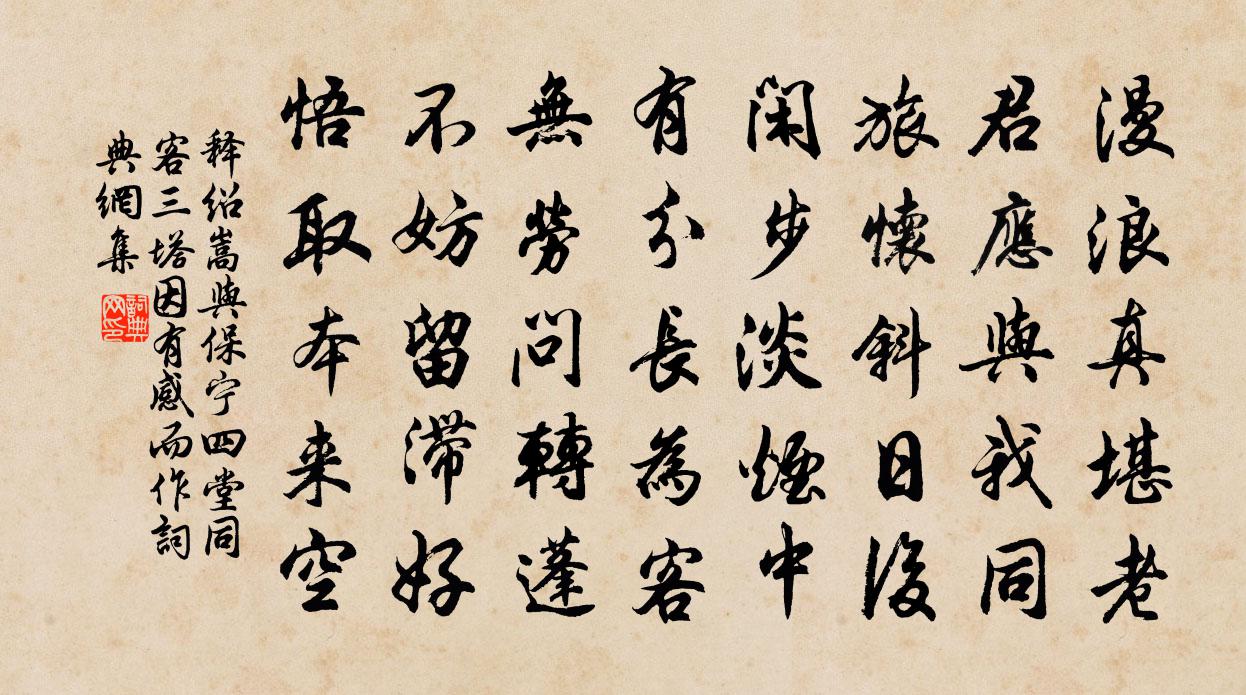 漫浪真堪老
君應與我同
旅懷斜日後
閑步淡煙中
有分長為客
無勞問轉蓬
不妨留滯好
悟取本来空
释绍嵩與保宁四堂同
客三塔因有感而作詞
典網集
詞典网印